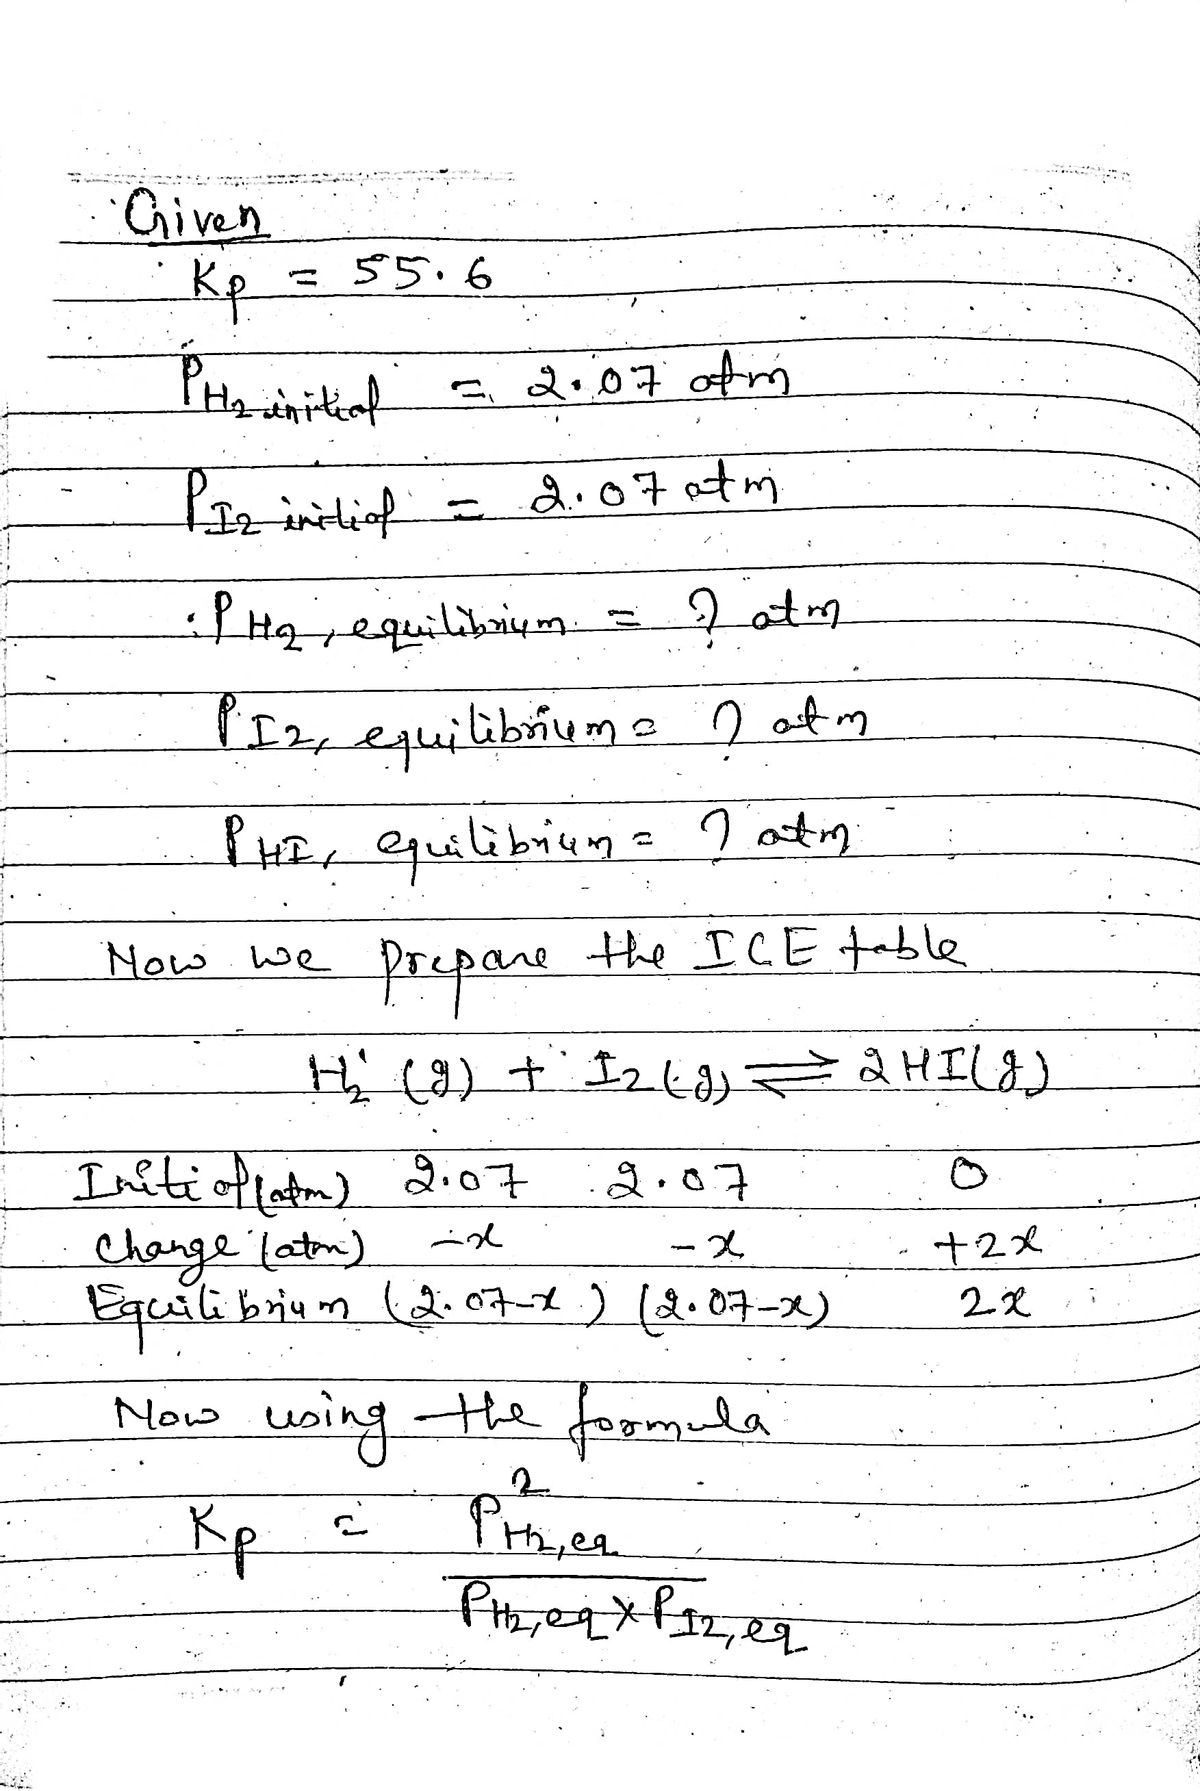 Given
Kp = 55.6
PH2 initial = 2.07 atm
PI2 initial = 2.07 atm
PH2, equilibrium = ? atm
PI2, equilibrium = ? atm
PHI, equilibrium = ? atm
Now we prepare the ICE table
H2 (g) + I2 (g) ⇌ 2HI(g)
Initial (atm) 2.07 2.07 0
Change (atm) -x -x +2x
Equilibrium (2.07-x) (2.07-x) 2x
Now using the formula
Kp = P²H2,eq
PH2,eq × PI2,eq